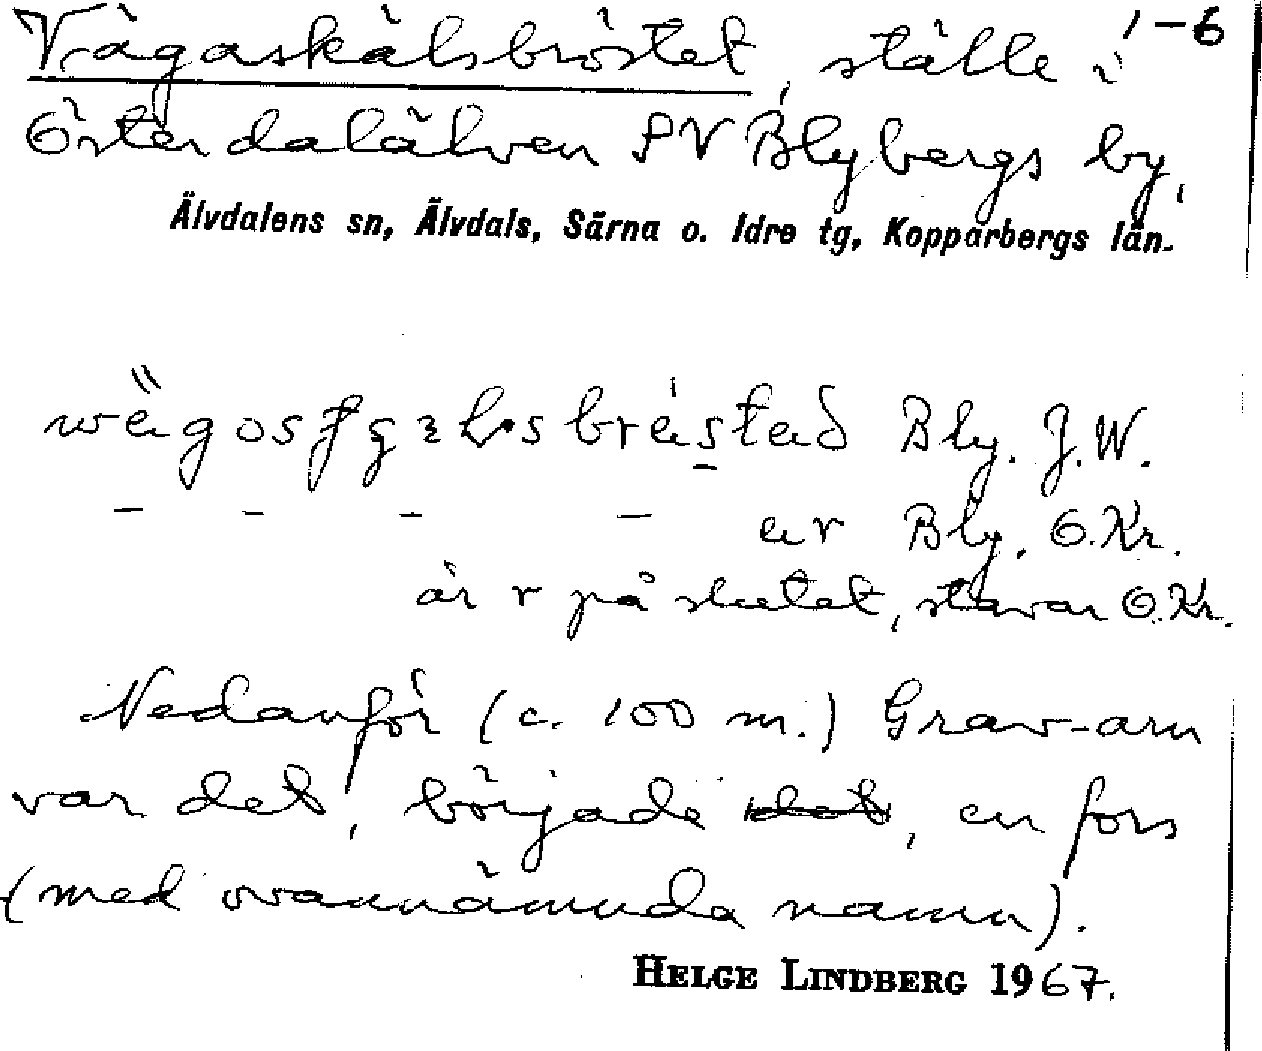 Vågaskälsbröstet, ställe i 1-6
Österdalälven SV Blybergs by,
Älvdalens sn, Älvdals, Särna o. Idre tg, Kopparbergs län.
Bly. J.W.
er Bly. O.Kr.
är r på slutet, stavar O.Kr.
Nedanför (c. 100 m.) Grav-arn
var det, började det, en fors
(med ovannämnda namn).
HELGE LINDBERG 1967.